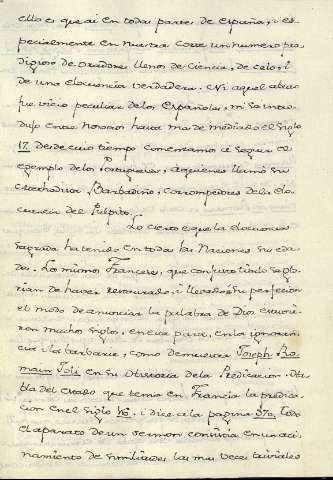 ello es que ai en todas partes de España, i es-
pecialmente en nuestra Corte un numero pro-
digioso de oradores llenos de ciencia, de celo, i
de una elocuencia verdadera. Ni aquel abuso
fue vicio peculiar de los Españoles, ni se intro-
dujo entre nosotros hasta mas de mediado el siglo
17. desde cuio tiempo comenzamos a seguir el
exemplo de los Portugueses, a quienes llamó su
Barbadiño, corrompedores de la elo-
cuencia del Pulpito.
Lo cierto es que la elocuencia
sagrada ha tenido en todas las Naciones sus eda-
des. Los mismos Franceses, que con justo titulo se glo-
rian de haver restaurado, i llevado a su perfeccion
el modo de anunciar la palabra de Dios estuvie-
ron muchos siglos, en esta parte, en la ignoran-
cia i la barbarie, como demuestra Joseph Ro-
main Joli en su Historia de la Predicacion. Ha-
bla del estado que tenia en Francia la predica-
cion en el siglo 16. i dice a la pagina 370. Todo
el aparato de un sermon consistia en un aci-
namiento de similitudes las mas veces triviales